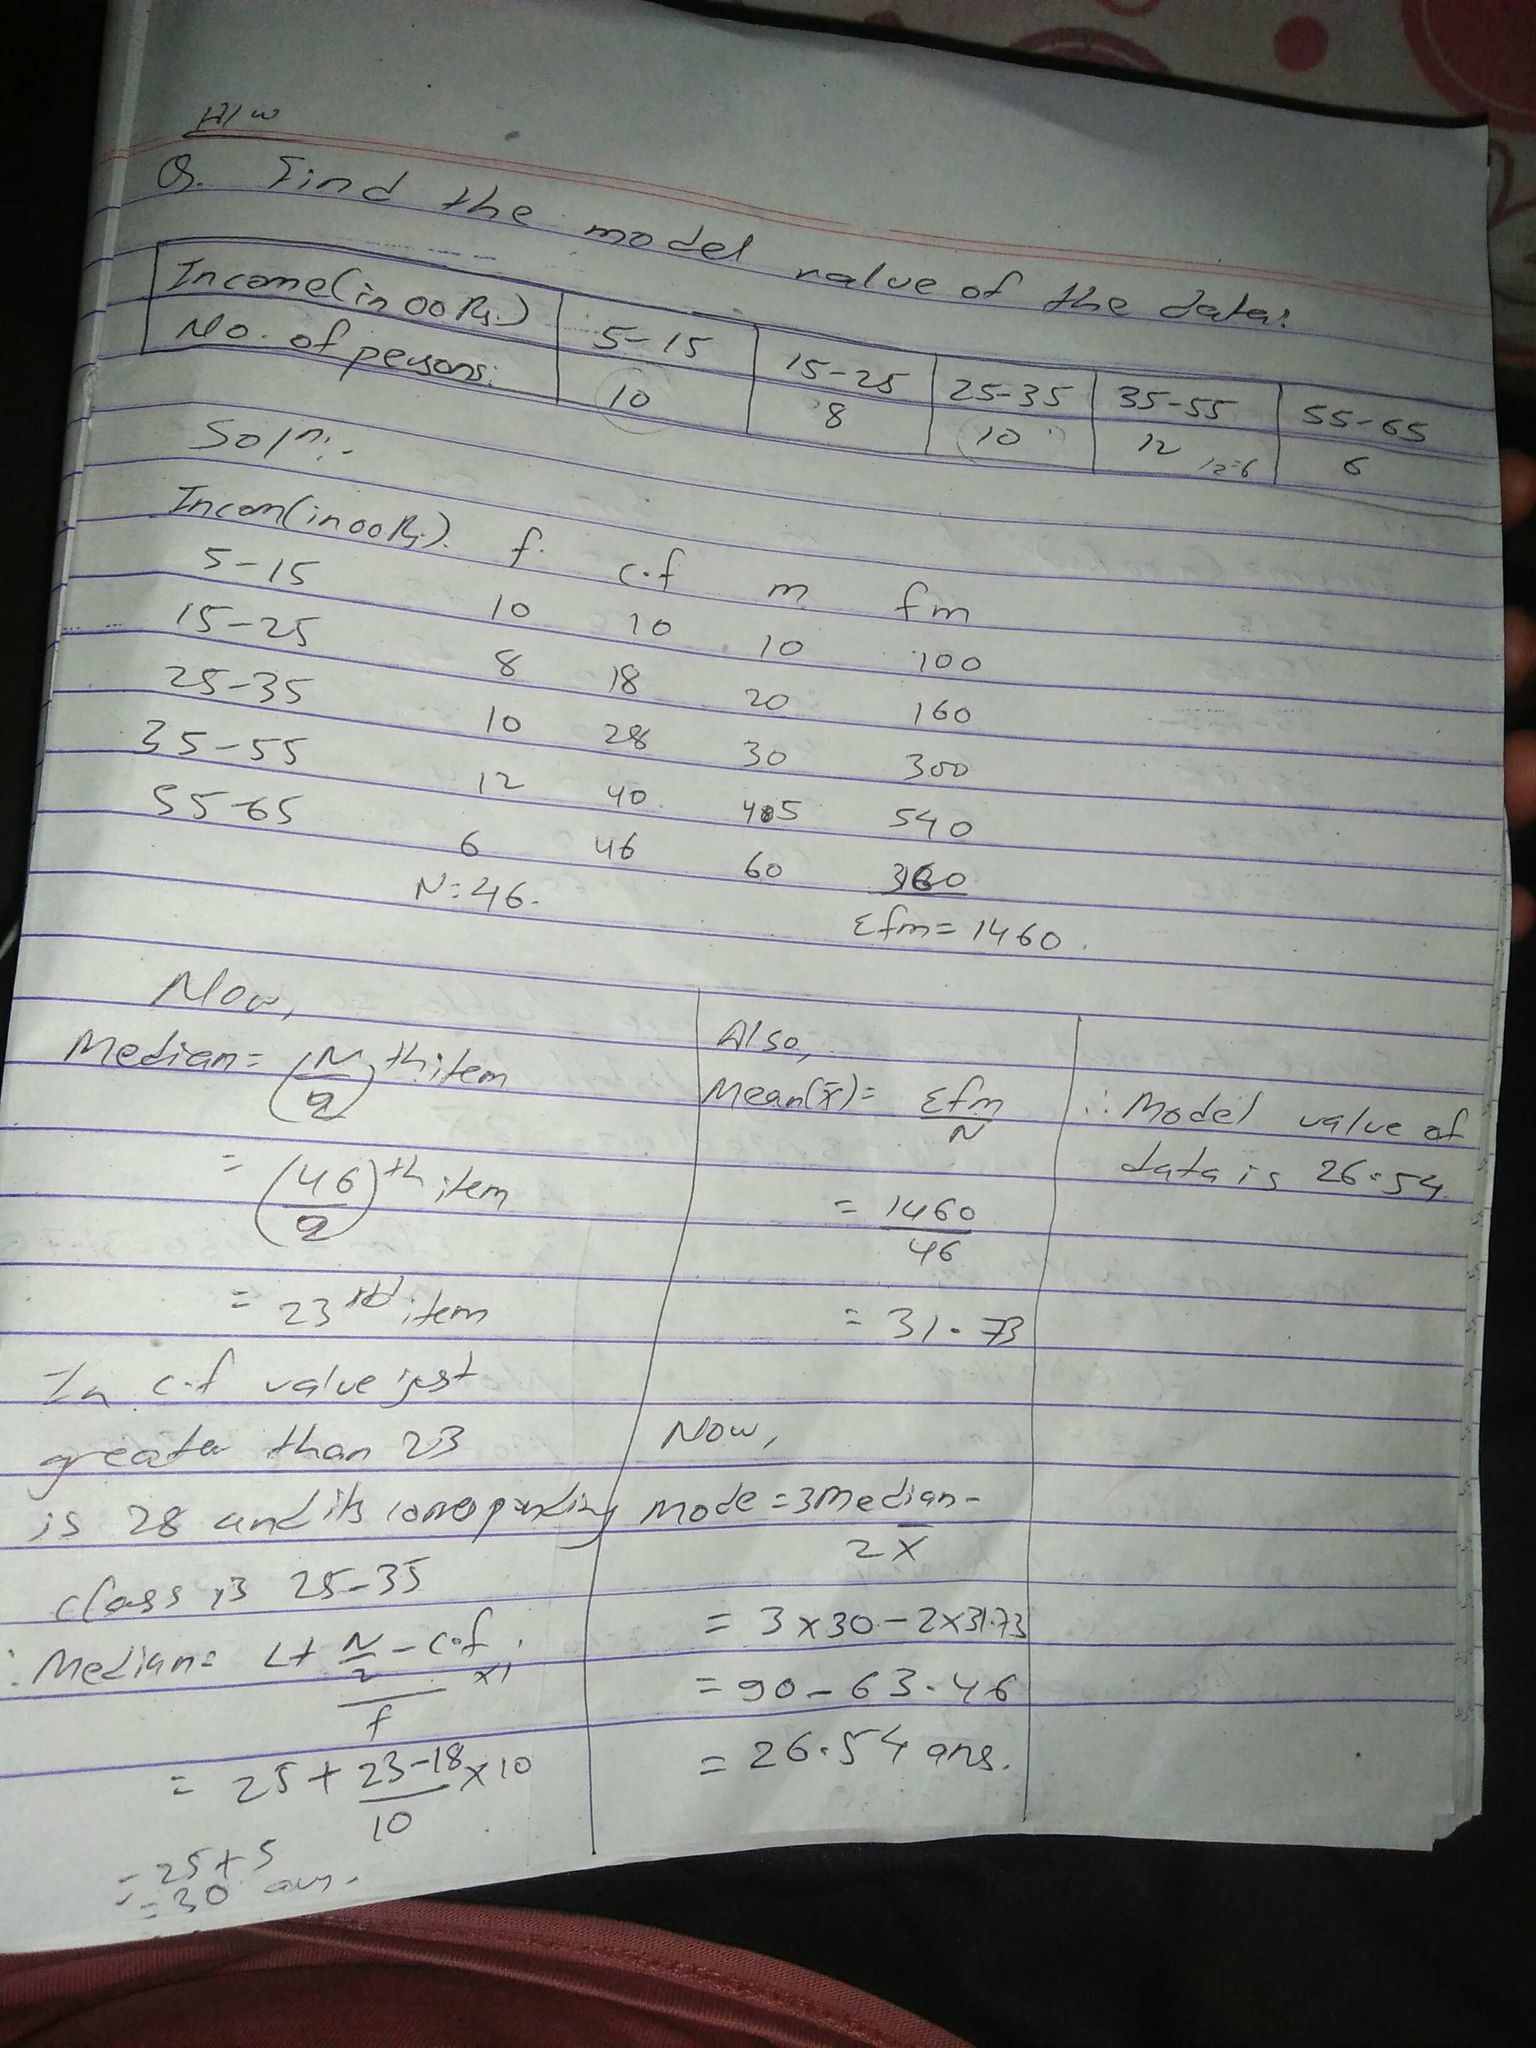 H/w
Q. Find the model value of the data:
Income(in 00 Rs.) 5-15 15-25 25-35 35-55 55-65
No. of persons: 10 8 10 12 12=6 6
Soln:-
Incom(in 00 Rs). f. c.f m fm
5-15 10 10 10 100
15-25 8 18 20 160
25-35 10 28 30 300
35-55 12 40 45 540
55-65 6 46 60 360
N=46. Σfm= 1460.
Now,
Median= (N/2)th item
= (46/2)th item
= 23rd item
In c.f value just
greater than 23
is 28 and its corresponding
class is 25-35
∴ Median= L+ N/2 - c.f / f ×i
= 25 + 23-18/10 × 10
= 25+5
= 30 ans.
Also,
Mean(x̄)= Σfm/N
= 1460/46
= 31.73
Now,
Mode = 3Median-
2x̄
= 3×30-2×31.73
= 90-63.46
= 26.54 ans.
∴ Model value of
data is 26.54.